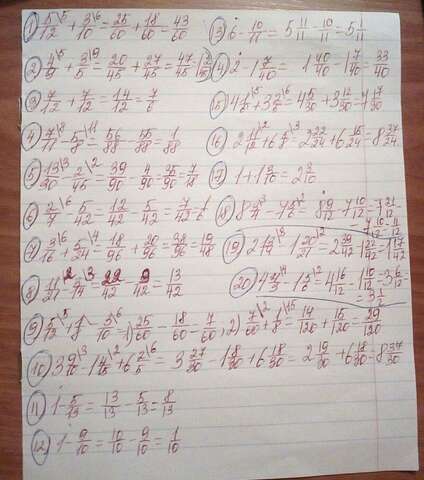 1) 5/12 + 3/10 = 25/60 + 18/60 = 43/60
2) 4/9 + 3/5 = 20/45 + 27/45 = 47/45 = 1 2/45
3) 7/12 + 7/12 = 14/12 = 7/6
4) 7/11 - 5/8 = 56/88 - 55/88 = 1/88
5) 13/30 - 2/45 = 39/90 - 4/90 = 35/90 = 7/18
6) 2/7 - 5/42 = 12/42 - 5/42 = 7/42 = 1/6
7) 3/16 + 5/24 = 18/96 + 20/96 = 38/96 = 19/48
8) 11/21 - 3/14 = 22/42 - 9/42 = 13/42
9) 1) 25/60 - 18/60 = 7/60, 2) 7/60 + 1/8 = 14/120 + 15/120 = 29/120
10) 3 9/10 - 1 4/15 + 6 = 3 27/30 - 1 8/30 + 6 18/30 = 2 19/30 + 6 18/30 = 8 37/30
11) 1 - 5/13 = 13/13 - 5/13 = 8/13
12) 1 - 9/10 = 10/10 - 9/10 = 1/10
13) 6 - 10/11 = 5 11/11 - 10/11 = 5 1/11
14) 2 - 1 7/40 = 1 40/40 - 1 7/40 = 33/40
15) = 4 5/30 + 3 12/30 = 7 17/30
16) 2 11/12 + 6 5/8 = 2 22/24 + 6 15/24 = 8 37/24
17) 1 + 1 3/10 = 2 3/10
18) 8 3/4 - 7 5/6 = 8 9/12 - 7 10/12 = 7 21/12
- 7 10/12 = 11/12
19) 2 13/14 - 1 20/21 =
20) = 4 16/12 - 1 10/12 = 3 6/12
= 3 1/2